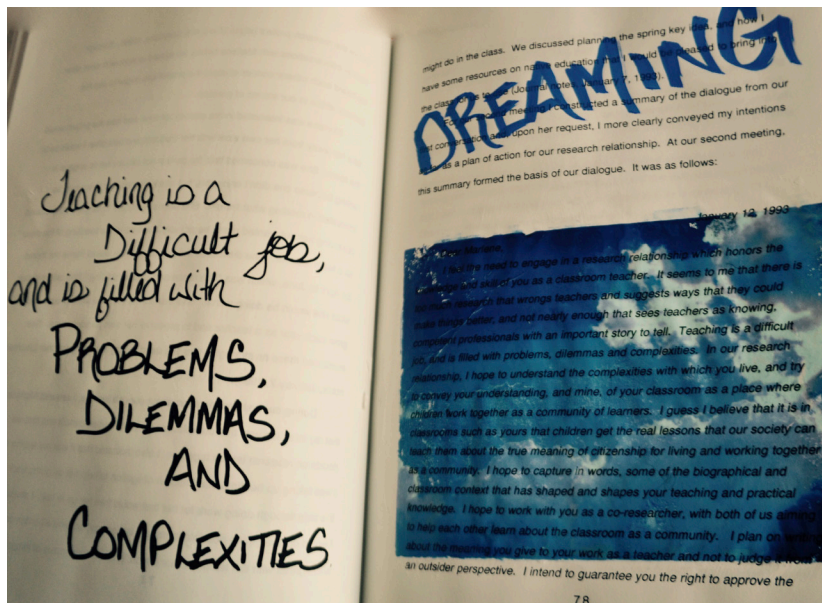 Teaching is a
Difficult job,
and is filled with
PROBLEMS,
DILEMMAS,
AND
COMPLEXITIES
DREAMING
might do in the class. We discussed planning the spring key idea, and how I
have some resources on education that I would be pleased to bring into
the class (Journal notes, January 7, 1993).
For meeting I constructed a summary of the dialogue from our
conversation and, upon her request, I more clearly conveyed my intentions
as a plan of action for our research relationship. At our second meeting,
this summary formed the basis of our dialogue. It was as follows:
January 12, 1993
Dear Marlene,
I feel the need to engage in a research relationship which honors the
knowledge and skill of you as a classroom teacher. It seems to me that there is
too much research that wrongs teachers and suggests ways that they could
make things better, and not nearly enough that sees teachers as knowing,
competent professionals with an important story to tell. Teaching is a difficult
job, and is filled with problems, dilemmas and complexities. In our research
relationship, I hope to understand the complexities with which you live, and try
to convey your understanding, and mine, of your classroom as a place where
children work together as a community of learners. I guess I believe that it is in
classrooms such as yours that children get the real lessons that our society can
teach them about the true meaning of citizenship for living and working together
as a community. I hope to capture in words, some of the biographical and
classroom context that has shaped and shapes your teaching and practical
knowledge. I hope to work with you as a co-researcher, with both of us aiming
to help each other learn about the classroom as a community. I plan on writing
about the meaning you give to your work as a teacher and not to judge it from
an outsider perspective. I intend to guarantee you the right to approve the
78